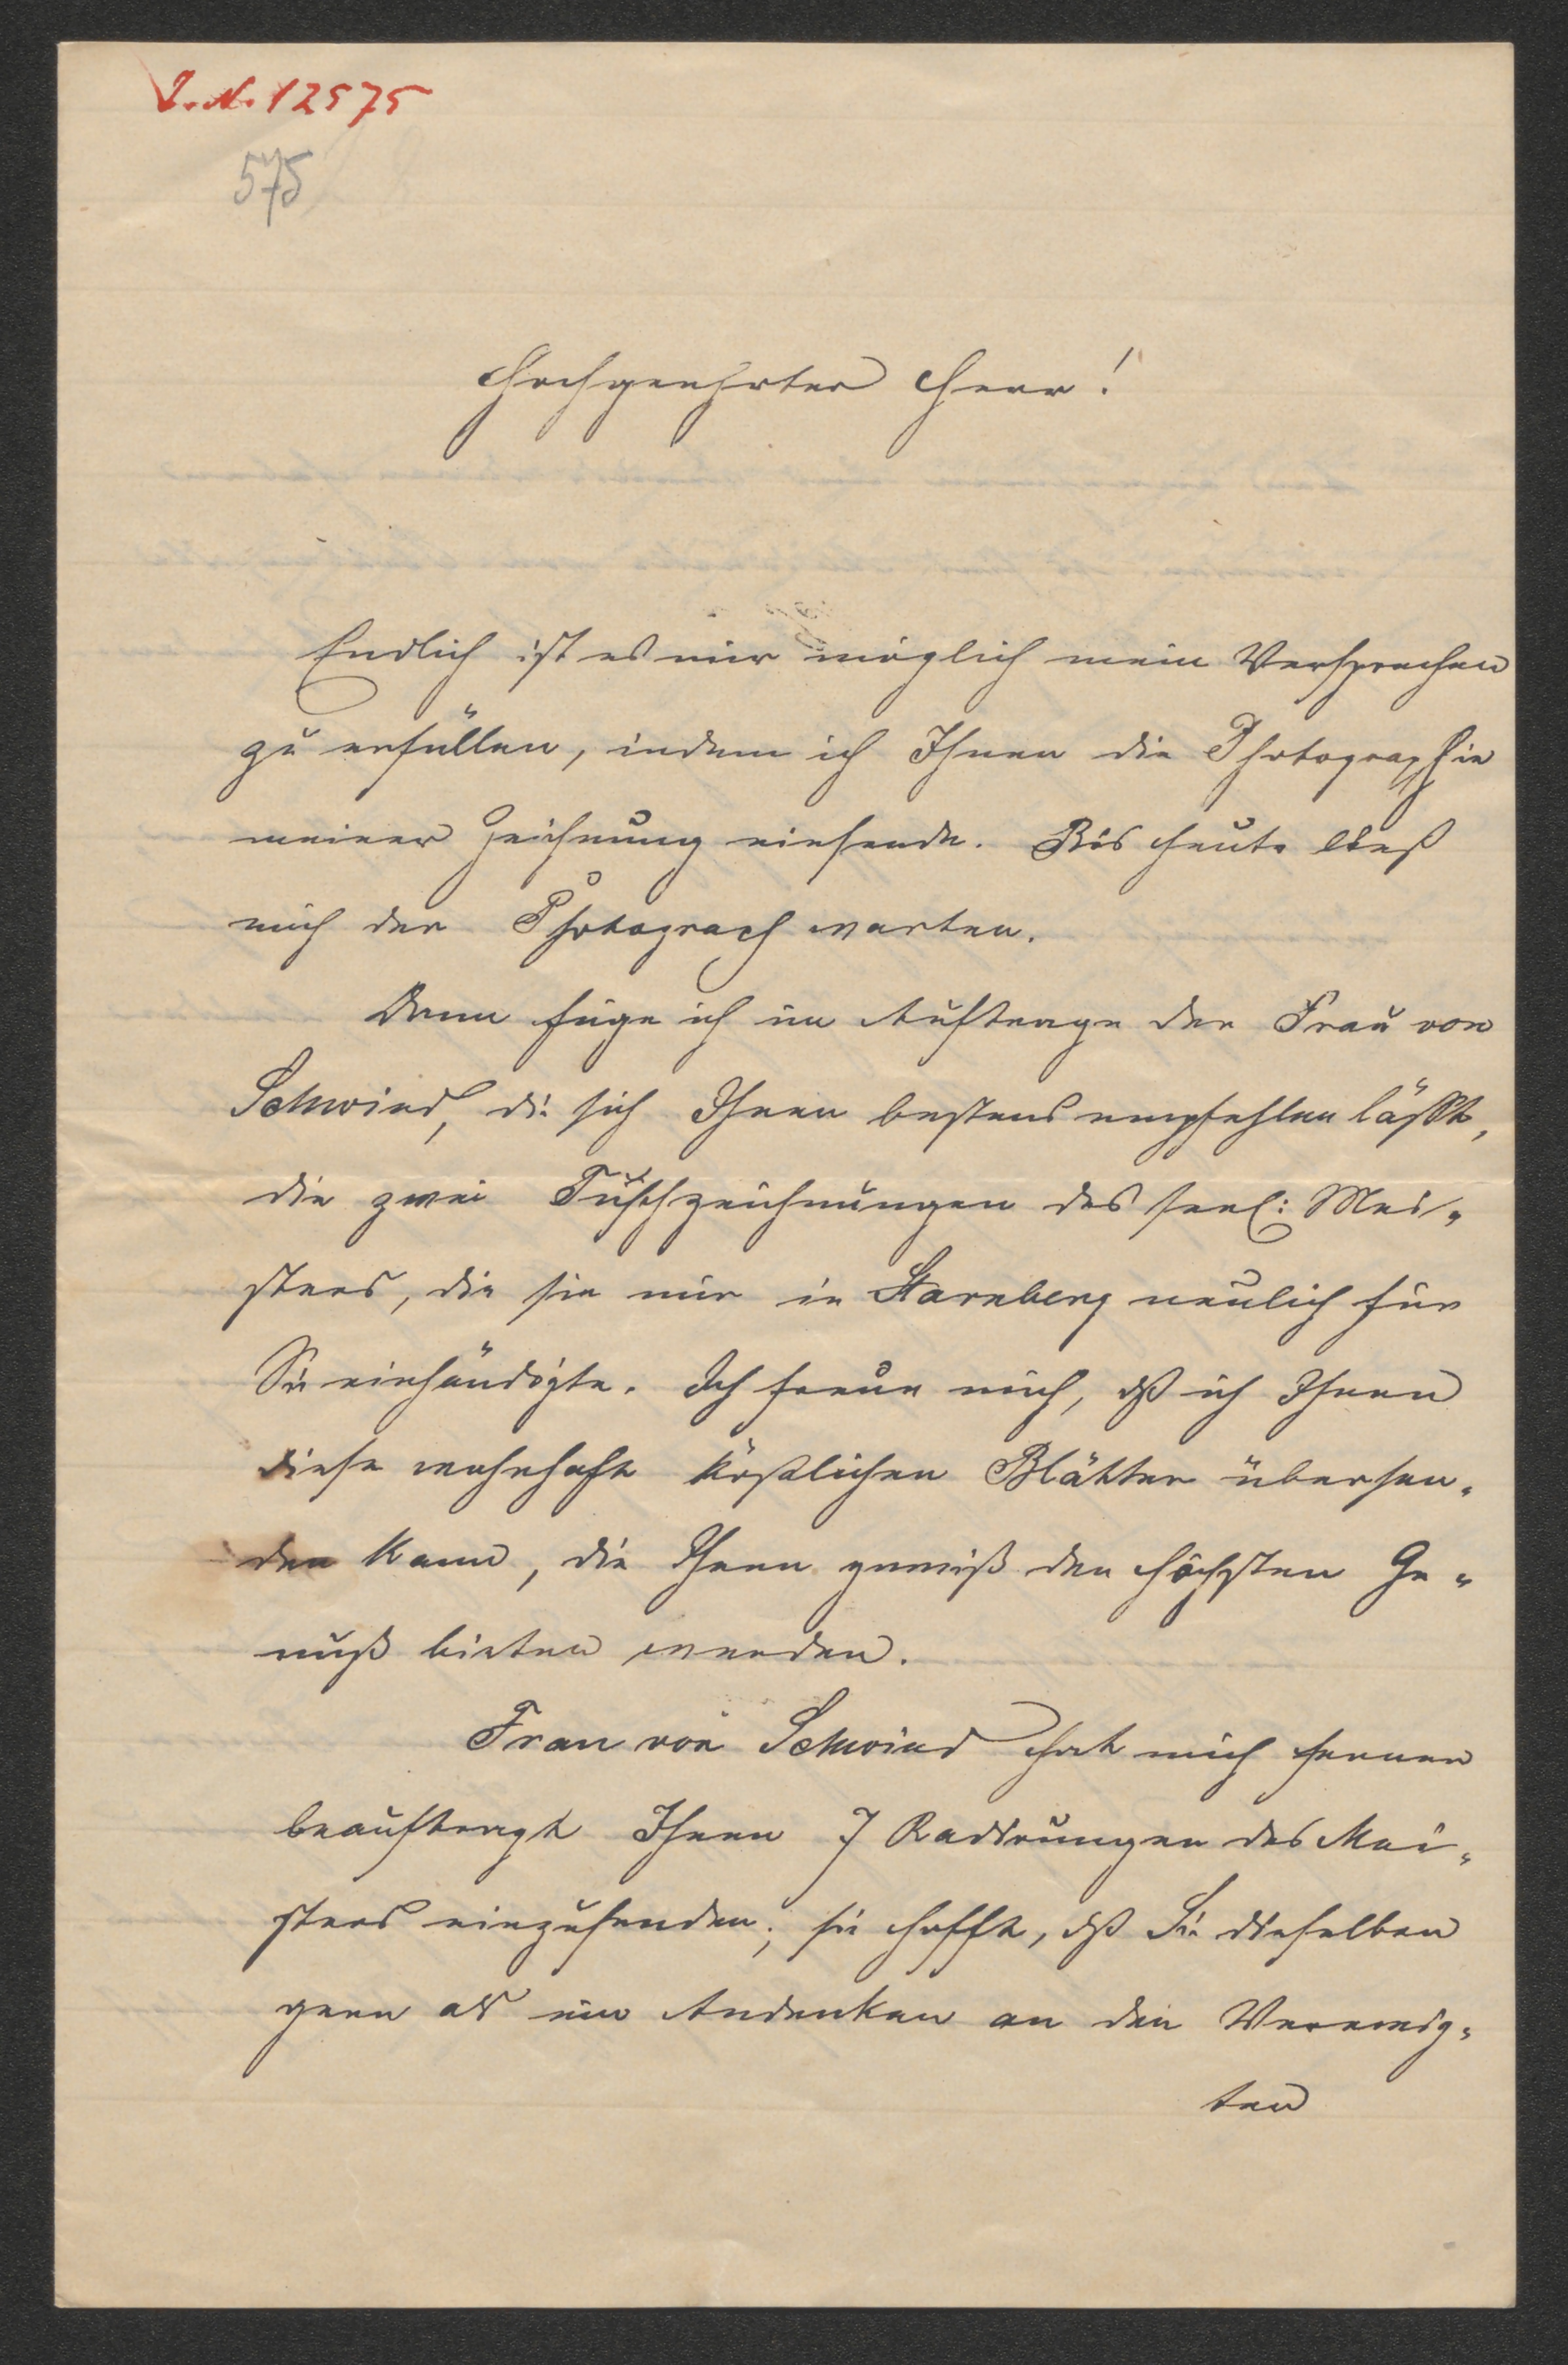 J. N. 12575
575
Hochgeehrter Herr!
Endlich ist es mir möglich mein Versprechen
zu erfüllen, indem ich Ihnen die Photographie
meiner Zeichnung einsende. Bis heute ließ
mich der Photograph warten.
Dann füge ich im Auftrage der Frau von
Schwind, die sich Ihnen bestens empfehlen läßt,
die zwei Tuschzeichnungen des seel: Mei„
sters, die sie mir in Starnberg neulich für
Sie einhändigte. Ich freue mich, dß ich Ihnen
diese wahrhaft köstlichen Blätter übersen„
den kann, die Ihnen gewiß den höchsten Ge„
nuß bieten werden.
Frau von Schwind hat mich ferner
beauftragt Ihnen 7 Radirungen des Mei„
sters einzusenden; sie hofft, dß Sie dieselben
gern als ein Andenken an den Verewig„
ten